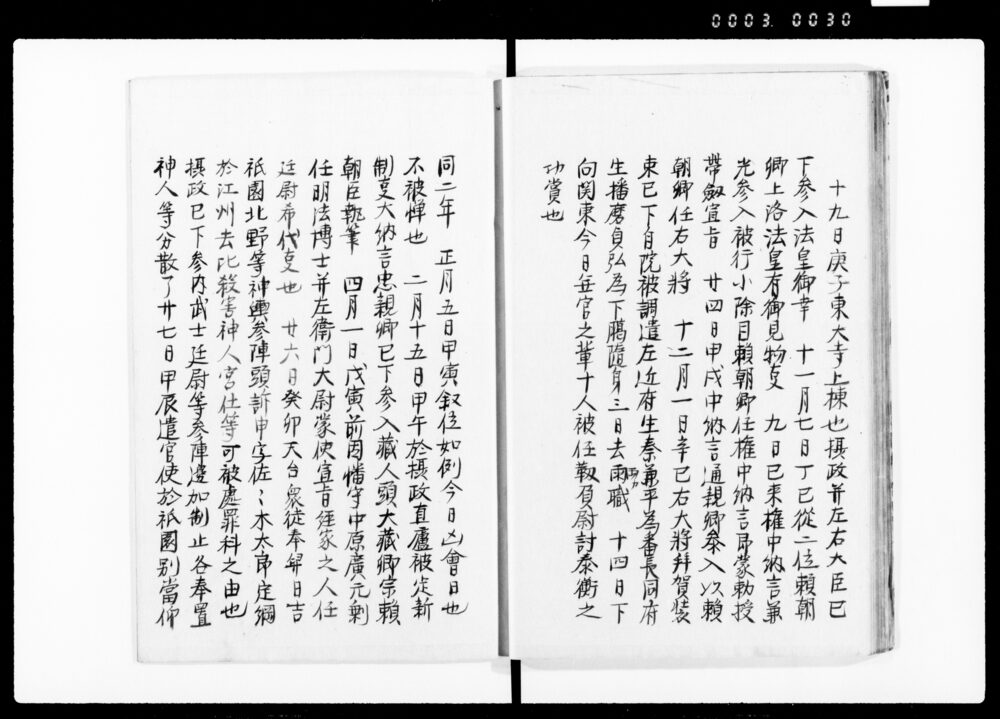 0003 0030
十九日庚子東大寺上棟也摂政并左右大臣已
下参入法皇御幸　十一月七日丁巳従二位頼朝
卿上洛法皇有御見物事　九日己未権中納言兼
光参入被行小除目頼朝卿任権中納言即蒙勅授
帯釼宣旨　廿四日甲戌中納言通親卿参入以頼
朝卿任右大将　十二月一日辛巳右大将拝賀装
束已下自院被調遣左近府生秦兼平為番長同府
生播磨貞弘為下臈随身三日去両職　十四日下
向関東今日無官之輩十人被任靱負尉討泰衡之
功賞也
同二年　正月五日甲寅叙位如例今日凶會日也
不被憚也　二月十五日甲午於摂政直廬被定新
制事大納言忠親卿已下参入蔵人頭大蔵卿宗頼
朝臣執筆　四月一日戊寅前因幡守中原廣元剰
任明法博士并左衛門大尉蒙使宣旨經家之人任
廷尉希代事也　廿六日癸卯天台衆徒奉舁日吉
祇園北野等神輿参陣頭訴申字佐々木太郎定綱
於江州去比殺害神人宮仕等可被處罪科之由也
摂政已下参内武士廷尉等参陣邊加制止各奉置
神人等分散了廿七日甲辰遣官使於祇園別當仰